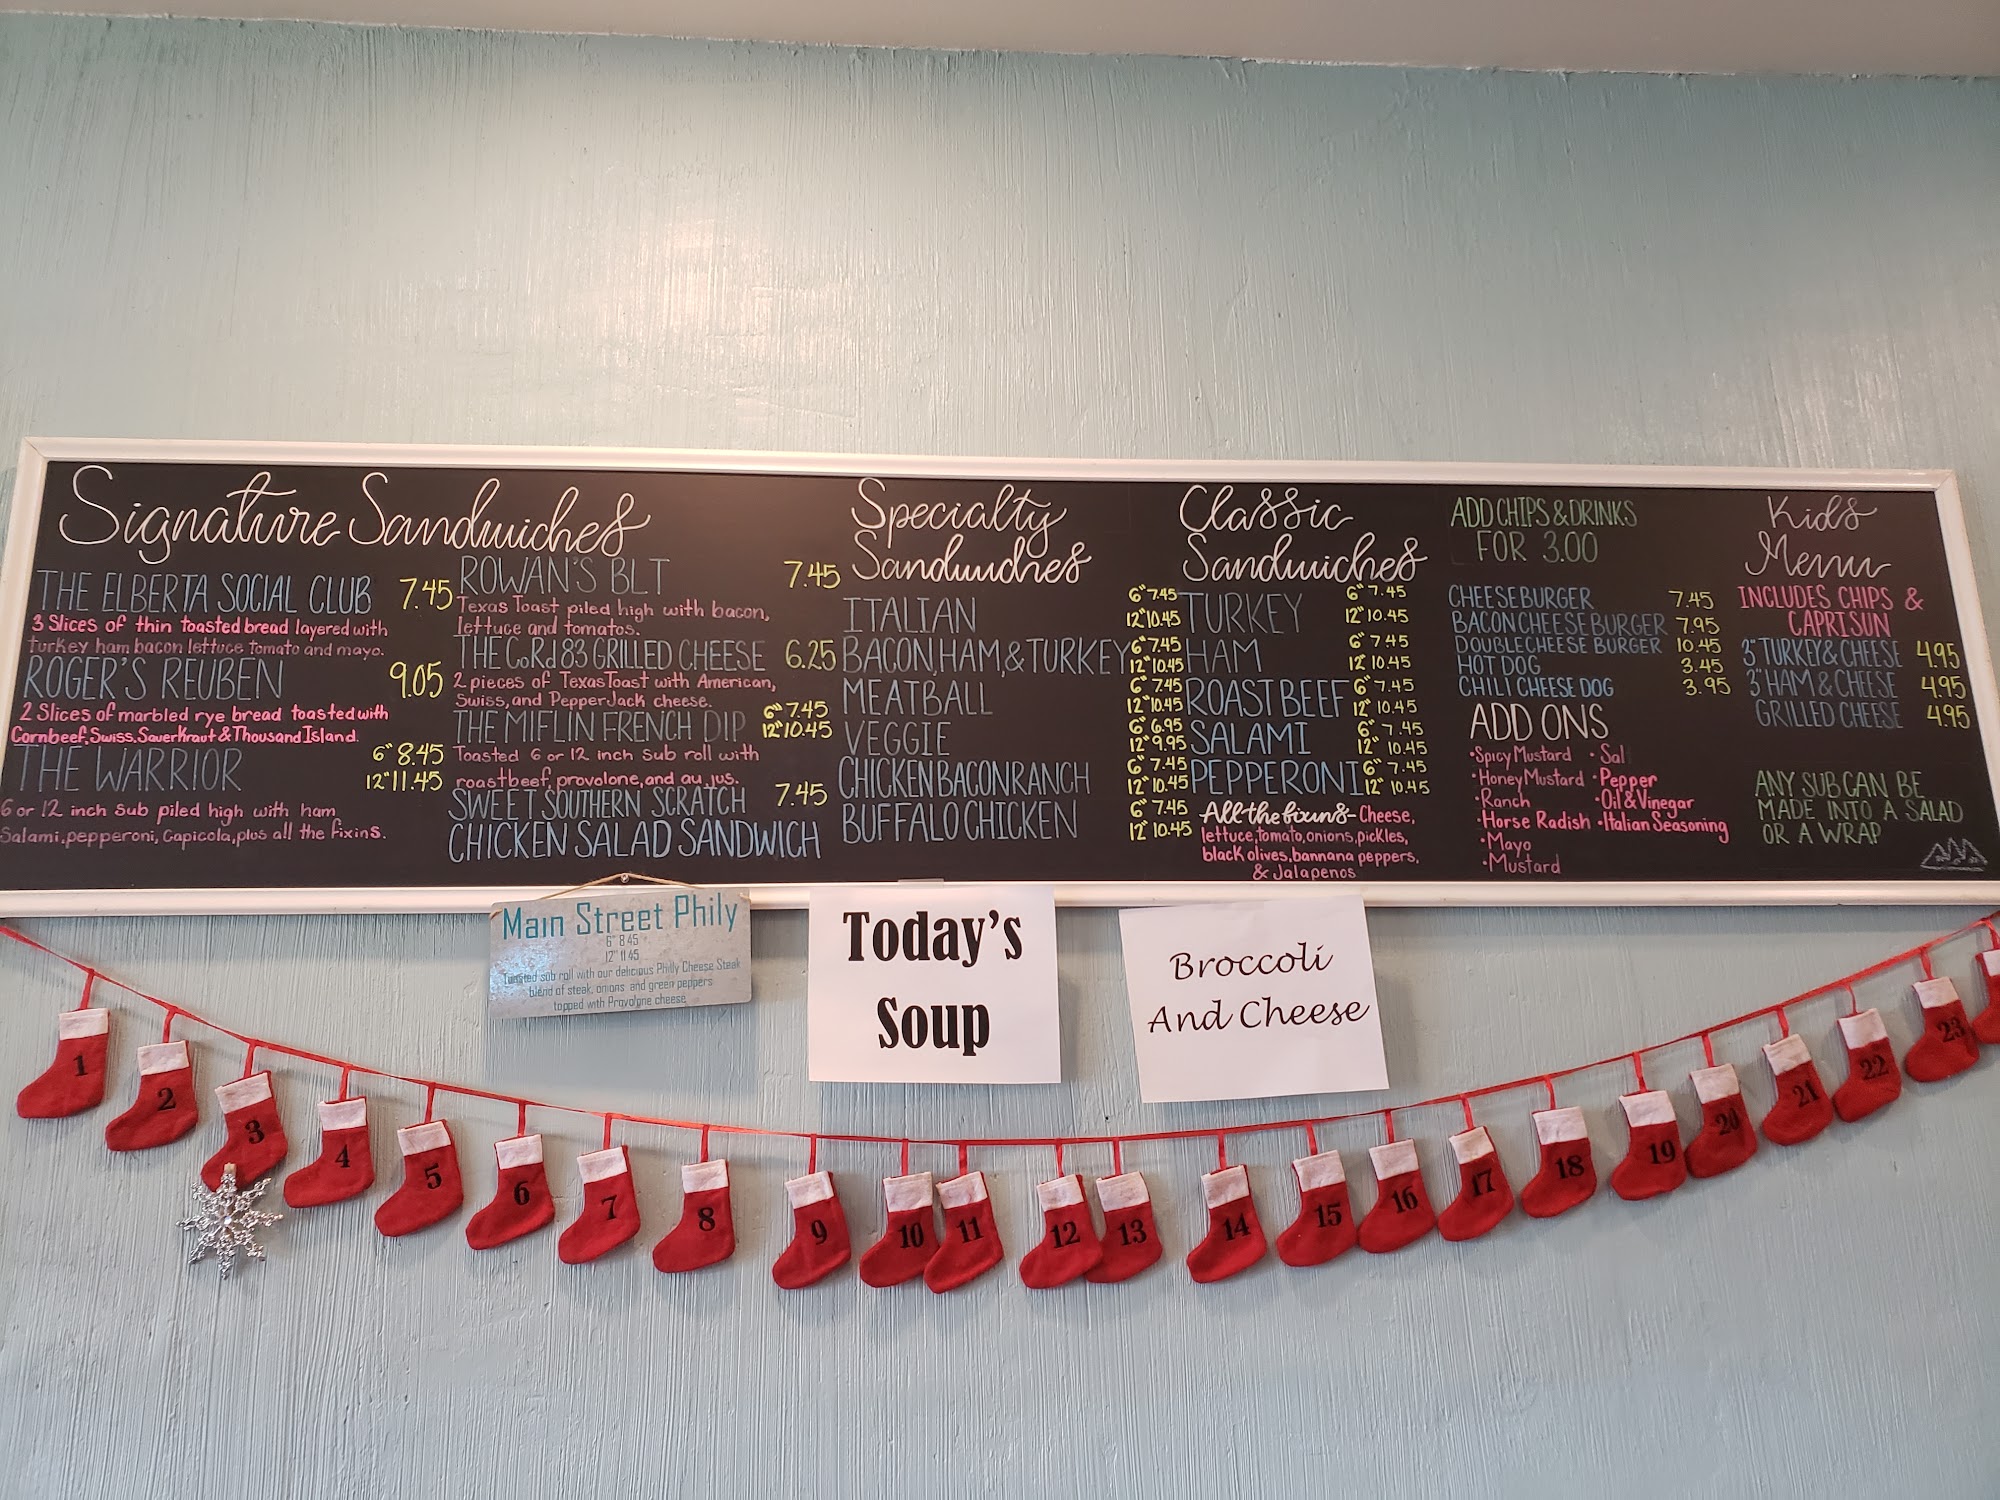 Signature Sandwiches
THE ELBERTA SOCIAL CLUB 7.45
3 Slices of thin toasted bread layered with
turkey ham bacon lettuce tomato and mayo.
ROGER'S REUBEN 9.05
2 Slices of marbled rye bread toasted with
Cornbeef, Swiss, SauerKraut & Thousand Island.
THE WARRIOR 6" 8.45
12" 11.45
6 or 12 inch sub piled high with ham
Salami, pepperoni, Capicola, plus all the fixins.
ROWAN'S BLT 7.45
Texas Toast piled high with bacon,
lettuce and tomatos.
THE CoRd 83 GRILLED CHEESE 6.25
2 pieces of Texas Toast with American,
Swiss, and Pepper Jack cheese.
THE MIFLIN FRENCH DIP 6" 7.45
12" 10.45
Toasted 6 or 12 inch sub roll with
roastbeef, provolone, and au jus.
SWEET SOUTHERN SCRATCH 7.45
CHICKEN SALAD SANDWICH
Specialty
Sandwiches
ITALIAN 6" 7.45
12" 10.45
BACON, HAM, & TURKEY 6" 7.45
12" 10.45
MEATBALL 6" 7.45
12" 10.45
VEGGIE 6" 6.95
12" 9.95
CHICKEN BACON RANCH 6" 7.45
12" 10.45
BUFFALO CHICKEN 6" 7.45
12" 10.45
Classic
Sandwiches
TURKEY 6" 7.45
12" 10.45
HAM 6" 7.45
12" 10.45
ROAST BEEF 6" 7.45
12" 10.45
SALAMI 6" 7.45
12" 10.45
PEPPERONI 6" 7.45
12" 10.45
All the fixuns - Cheese,
lettuce, tomato, onions, pickles,
black olives, bannana peppers,
& Jalapenos
ADD CHIPS & DRINKS
FOR 3.00
CHEESE BURGER 7.45
BACON CHEESE BURGER 7.95
DOUBLE CHEESE BURGER 10.45
HOT DOG 3.45
CHILI CHEESE DOG 3.95
ADD ONS
•Spicy Mustard •Sal
•Honey Mustard •Pepper
•Ranch •Oil & Vinegar
•Horse Radish •Italian Seasoning
•Mayo
•Mustard
Kids
Menu
INCLUDES CHIPS &
CAPRISUN
3" TURKEY & CHEESE 4.95
3" HAM & CHEESE 4.95
GRILLED CHEESE 4.95
ANY SUB CAN BE
MADE INTO A SALAD
OR A WRAP
Main Street Phily
6" 8.45
12" 11.45
Toasted sub roll with our delicious Philly Cheese Steak
blend of steak, onions and green peppers
topped with Provolone cheese
Today's
Soup
Broccoli
And Cheese
1
2
3
4
5
6
7
8
9
10
11
12
13
14
15
16
17
18
19
20
21
22
23